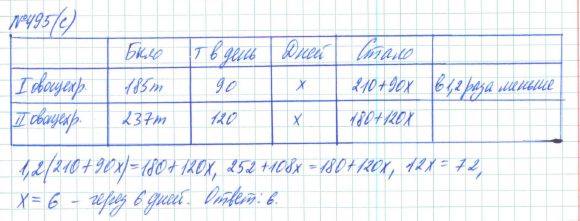 №495(с)
Было т в день Дней Стало
I овощехр. 185т 90 x 210+90x в 1,2 раза меньше
II овощехр. 237т 120 x 180+120x
1,2(210+90x)=180+120x, 252+108x=180+120x, 12x=72,
x=6 – через 6 дней. Ответ: 6.